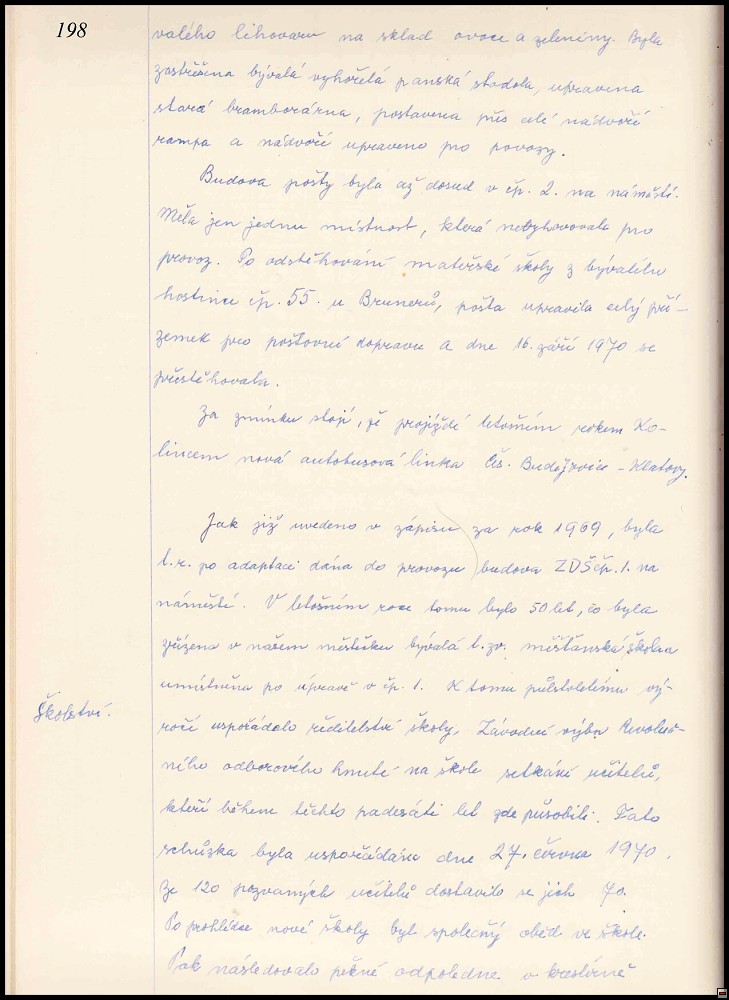 198
valého lihovaru na sklad ovoce a zeleniny. Byla
zastřešena bývalá vyhořelá panská stodola, upravena
stará bramborárna, postavena přes celé nádvoří
rampa a nádvoří upraveno pro povozy.
Budova pošty byla až dosud v čp. 2. na náměstí.
Měla jen jednu místnost, která nevyhovovala pro
provoz. Po odstěhování mateřské školy z bývalého
hostince čp. 55. u Brunerů, pošta upravila celý pří-
zemek pro poštovní dopravu a dne 16. září 1970 se
přistěhovala.
Za zmínku stojí, že projíždí letošním rokem Ko-
lincem nová autobusová linka Čes. Budějovice - Klatovy.
Jak již uvedeno v zápisu za rok 1969, byla
t.r. po adaptaci dána do provozu budova ZDŠ čp. 1. na
náměstí. V letošním roce tomu bylo 50 let, co byla
zřízena v našem městečku bývalá t. zv. měšťanská škola a
umístněna po úpravě v čp. 1. K tomu půlstoletímu vý-
Školství.
ročí uspořádalo ředitelství školy, Závodní výbor Revoluč-
ního odborového hnutí na škole setkání učitelů,
kteří během těchto padesáti let zde působili. Tato
schůzka byla uspořádána dne 27. června 1970.
Ze 120 pozvaných učitelů dostavilo se jich 70.
Po prohlídce nové školy byl společný oběd ve škole.
Pak následovalo pěkné odpoledne v kreslírně